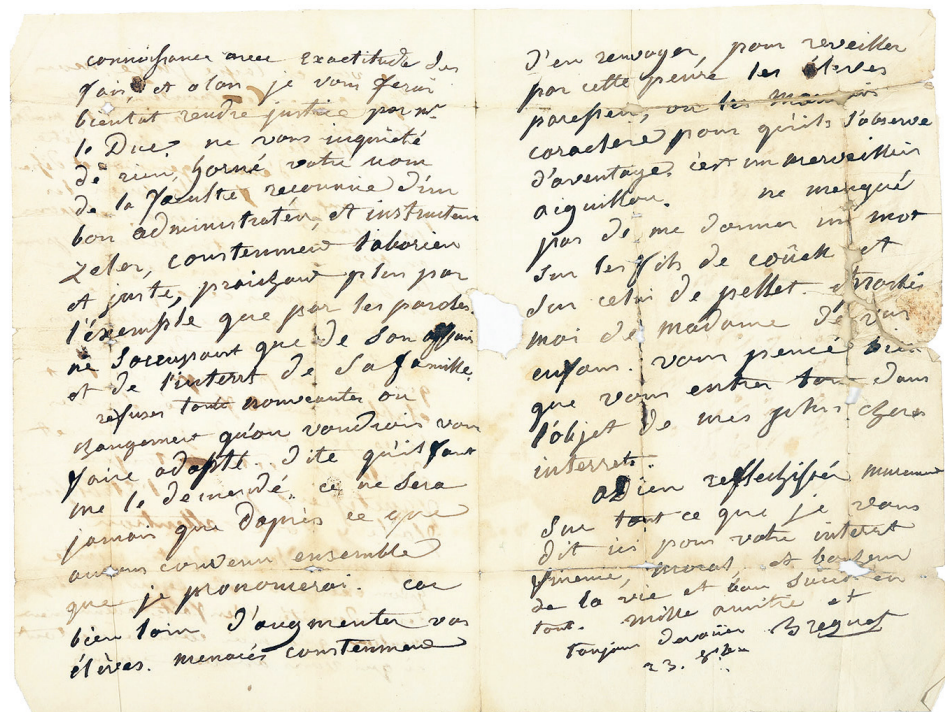 connoissance avec Exactitude des
fais, et alors je vous ferai
bientot rendre justice par mr
le Duc. ne vous inquieté
de rien, horné votre nom
de la faculté reconnue d'un
bon administraté, et instructeur
Zeler, constenment laborieu
et juste, praichant plus par
l'éxemple que par les paroles
ne s'occupant que de son affaire
et de l'interrt de sa famille.
refuser toute nouveautes ou
changement qu'on voudrois vous
faire adopté. dite qu'il faut
me le demendé. ce ne sera
jamais que d'après ce que
aurons convenu ensemble
que je prononcerai. car
bien loin d'augmenter vos
élèves. menacés constenment
d'en renvoyer, pour reveiller
par cette peure les élèves
paresseu, ou les mauvais
caractere pour qu'ils s'observe
d'aventage, c'est un merveilleux
aiguillon. ne menqué
pas de me donner un mot
sur les fils de coück et
sur celui de pellet.
moi de madame de vos
enfans. vous pencé bien
que vous entrer tout dans
l'objet de mes plus chers
interrets.
adieu reflechissés murement
sur tout ce que je vous
dit ici pour votre interret
finence, moral, et bonheur
de la vie et bon succès en
tout. mille amitié et
toujour devouer Breguet
23. 8bre